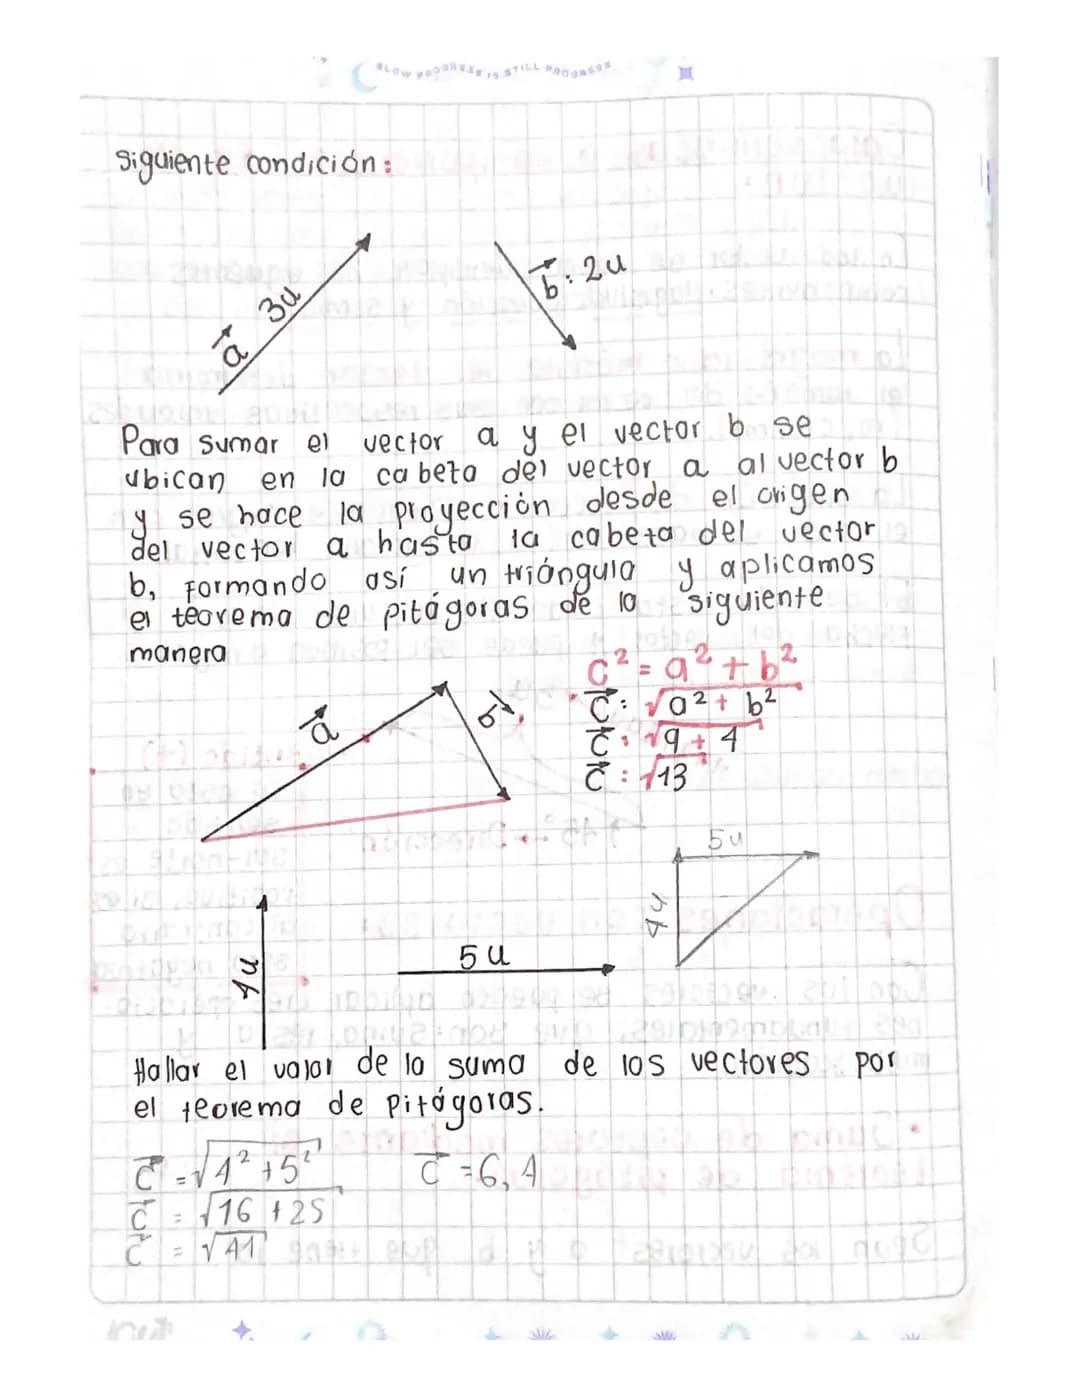 SLOW PROGRESS IS STILL PROGRESS
siguiente condición:
a 3u
b: 2u
Para sumar el vector a y el vector b se
ubican en la cabeta del vector a al vector b
y se hace la proyección desde el origen
del vector a hasta la cabeta del vector
b, Formando así un triángulo y aplicamos
el teorema de Pitágoras de la siguiente
manera
C² = a² + b²
C⃗: √a² + b²
C⃗: √9 + 4
C⃗: √13
a⃗
b⃗
5u
4u
4u
5u
Hallar el valor de la suma de los vectores por
el teorema de Pitágoras.
C⃗ = √4² + 5²
C⃗ = 6,4
C⃗ = √16 + 25
C⃗ = √41